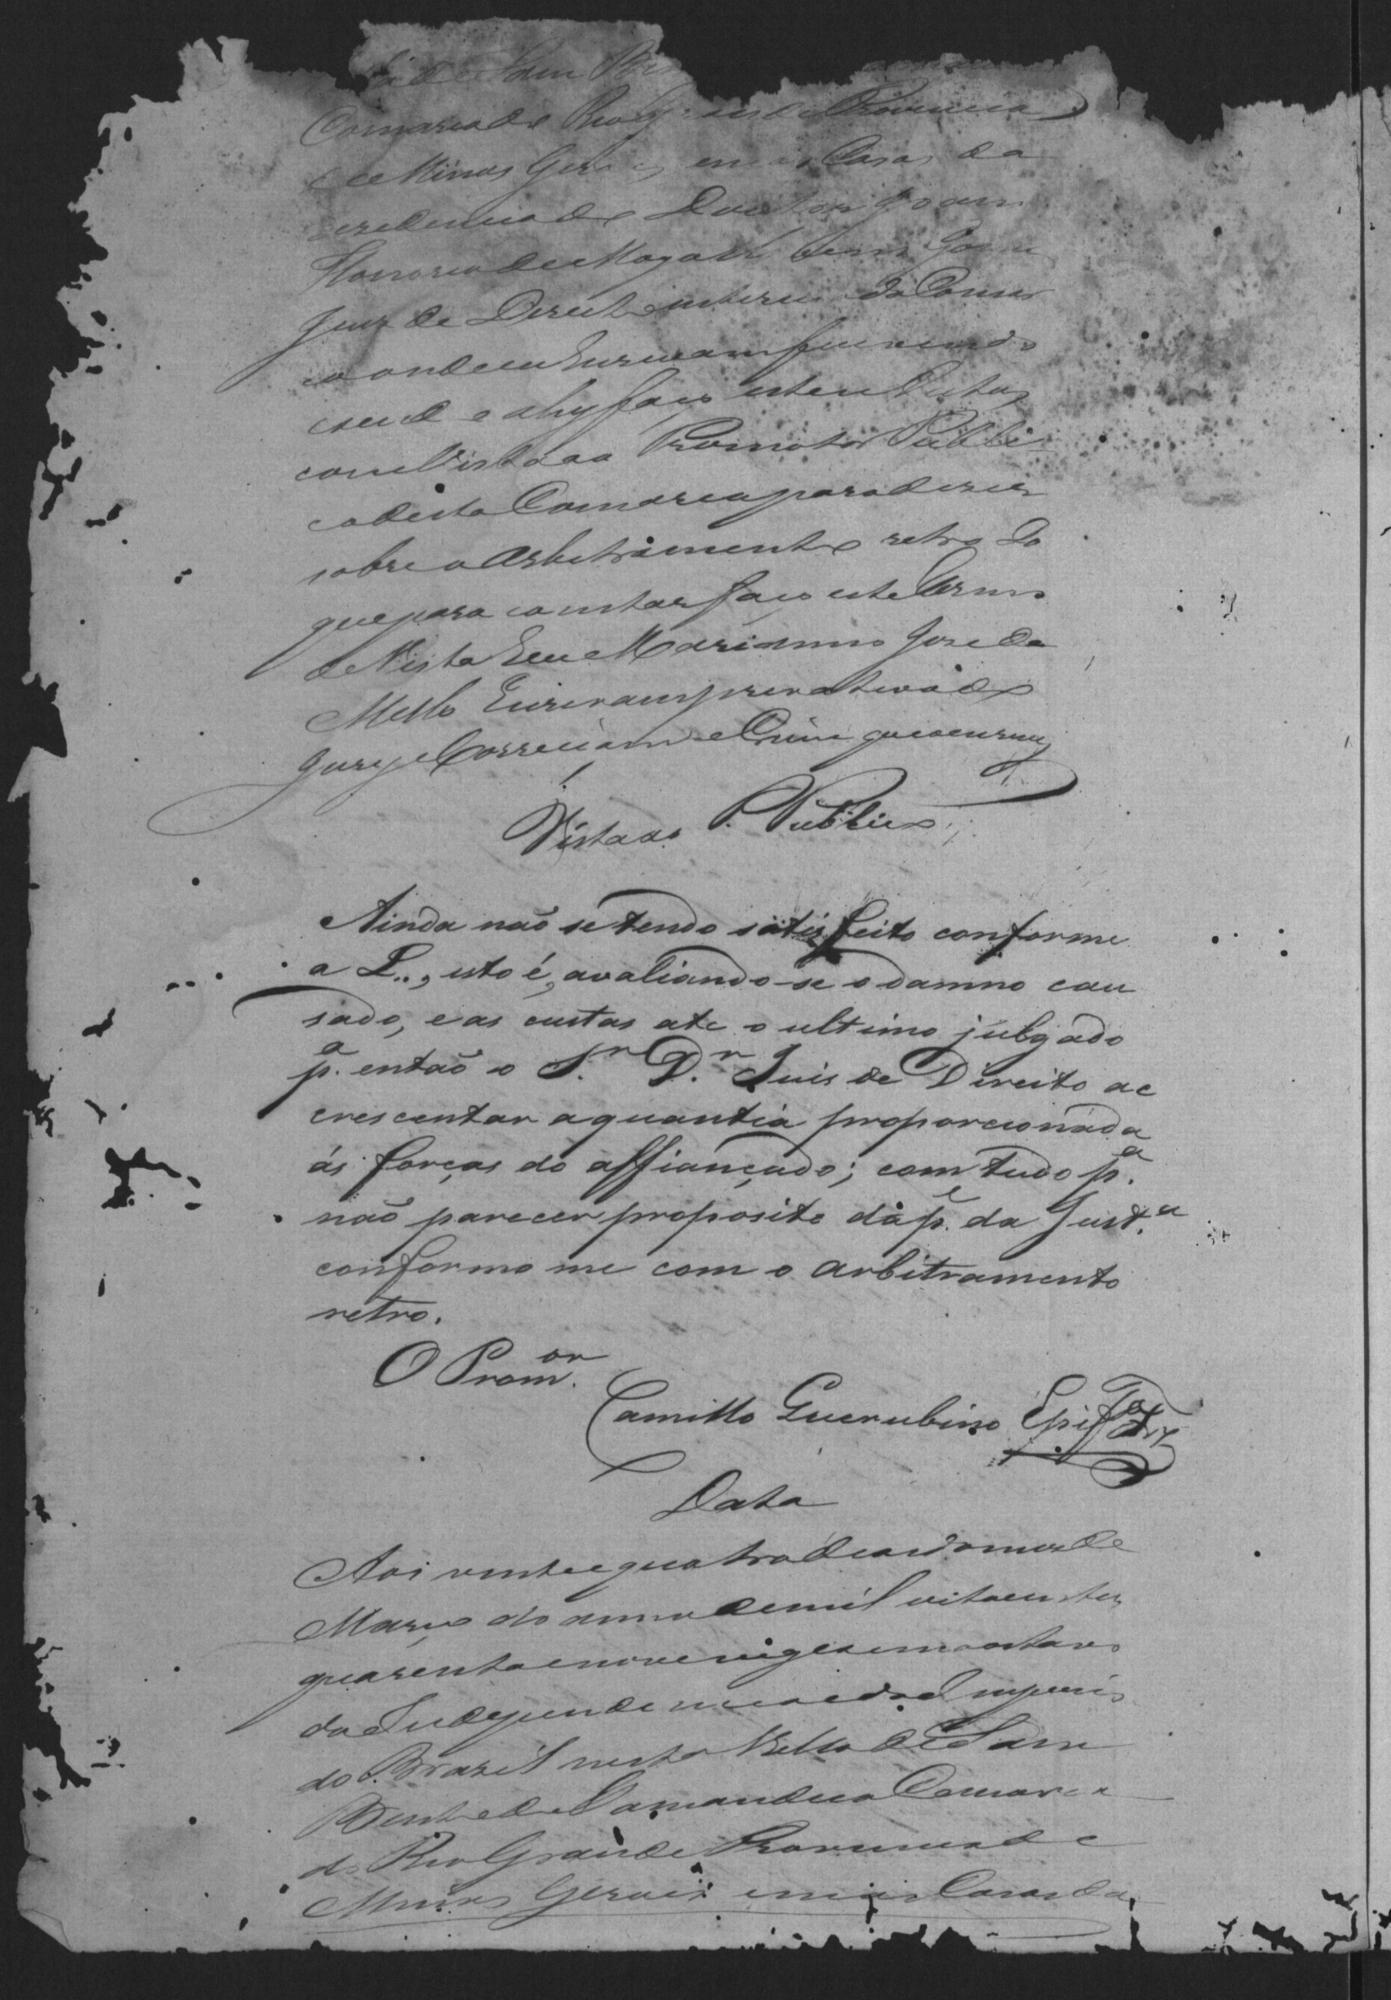 Comarca de Rio Grande Provincia
de Minas Geraes em as Casas da
rezidencia do Doutor Joam
Honorio de Magalh
Juiz de Direito interino da Comar
ca onde eu Escrivam fui vindo
e sendo ahy faço estes Autos
com Vista ao Promotor Publi
co desta Comarca para dizer
sobre o Arbitramento retro do
que para constar faço este Termo
de Vista Eu Marianno Jose de
Mello Escrivam privativo do
Jury Correiçam e Crime que escrevy
Vista ao P. Publico
Ainda não se tendo satisfeito conforme
a L.., isto é, avaliando-se o damno cau
sado, e as custas ate o ultimo julgado
pª. então o Sr. Dr. Juis de Direito ac
crescentar a quantia proporcionada
ás forças do affiançado; com tudo pª.
não parecer proposito da pe. da Just.ª
conformo me com o arbitramento
retro.
O Promor.
Camillo Guerubino
Data
Aos vinte e quatro dias do mez de
Março do anno de mil oitocentos
quarenta e nove vigesimo oitavo
da Independencia e do Imperio
do Brazil nesta Villa de Sam
Bento de Tamandua Comarca
do Rio Grande Provincia de
Minas Geraes em as Casas da